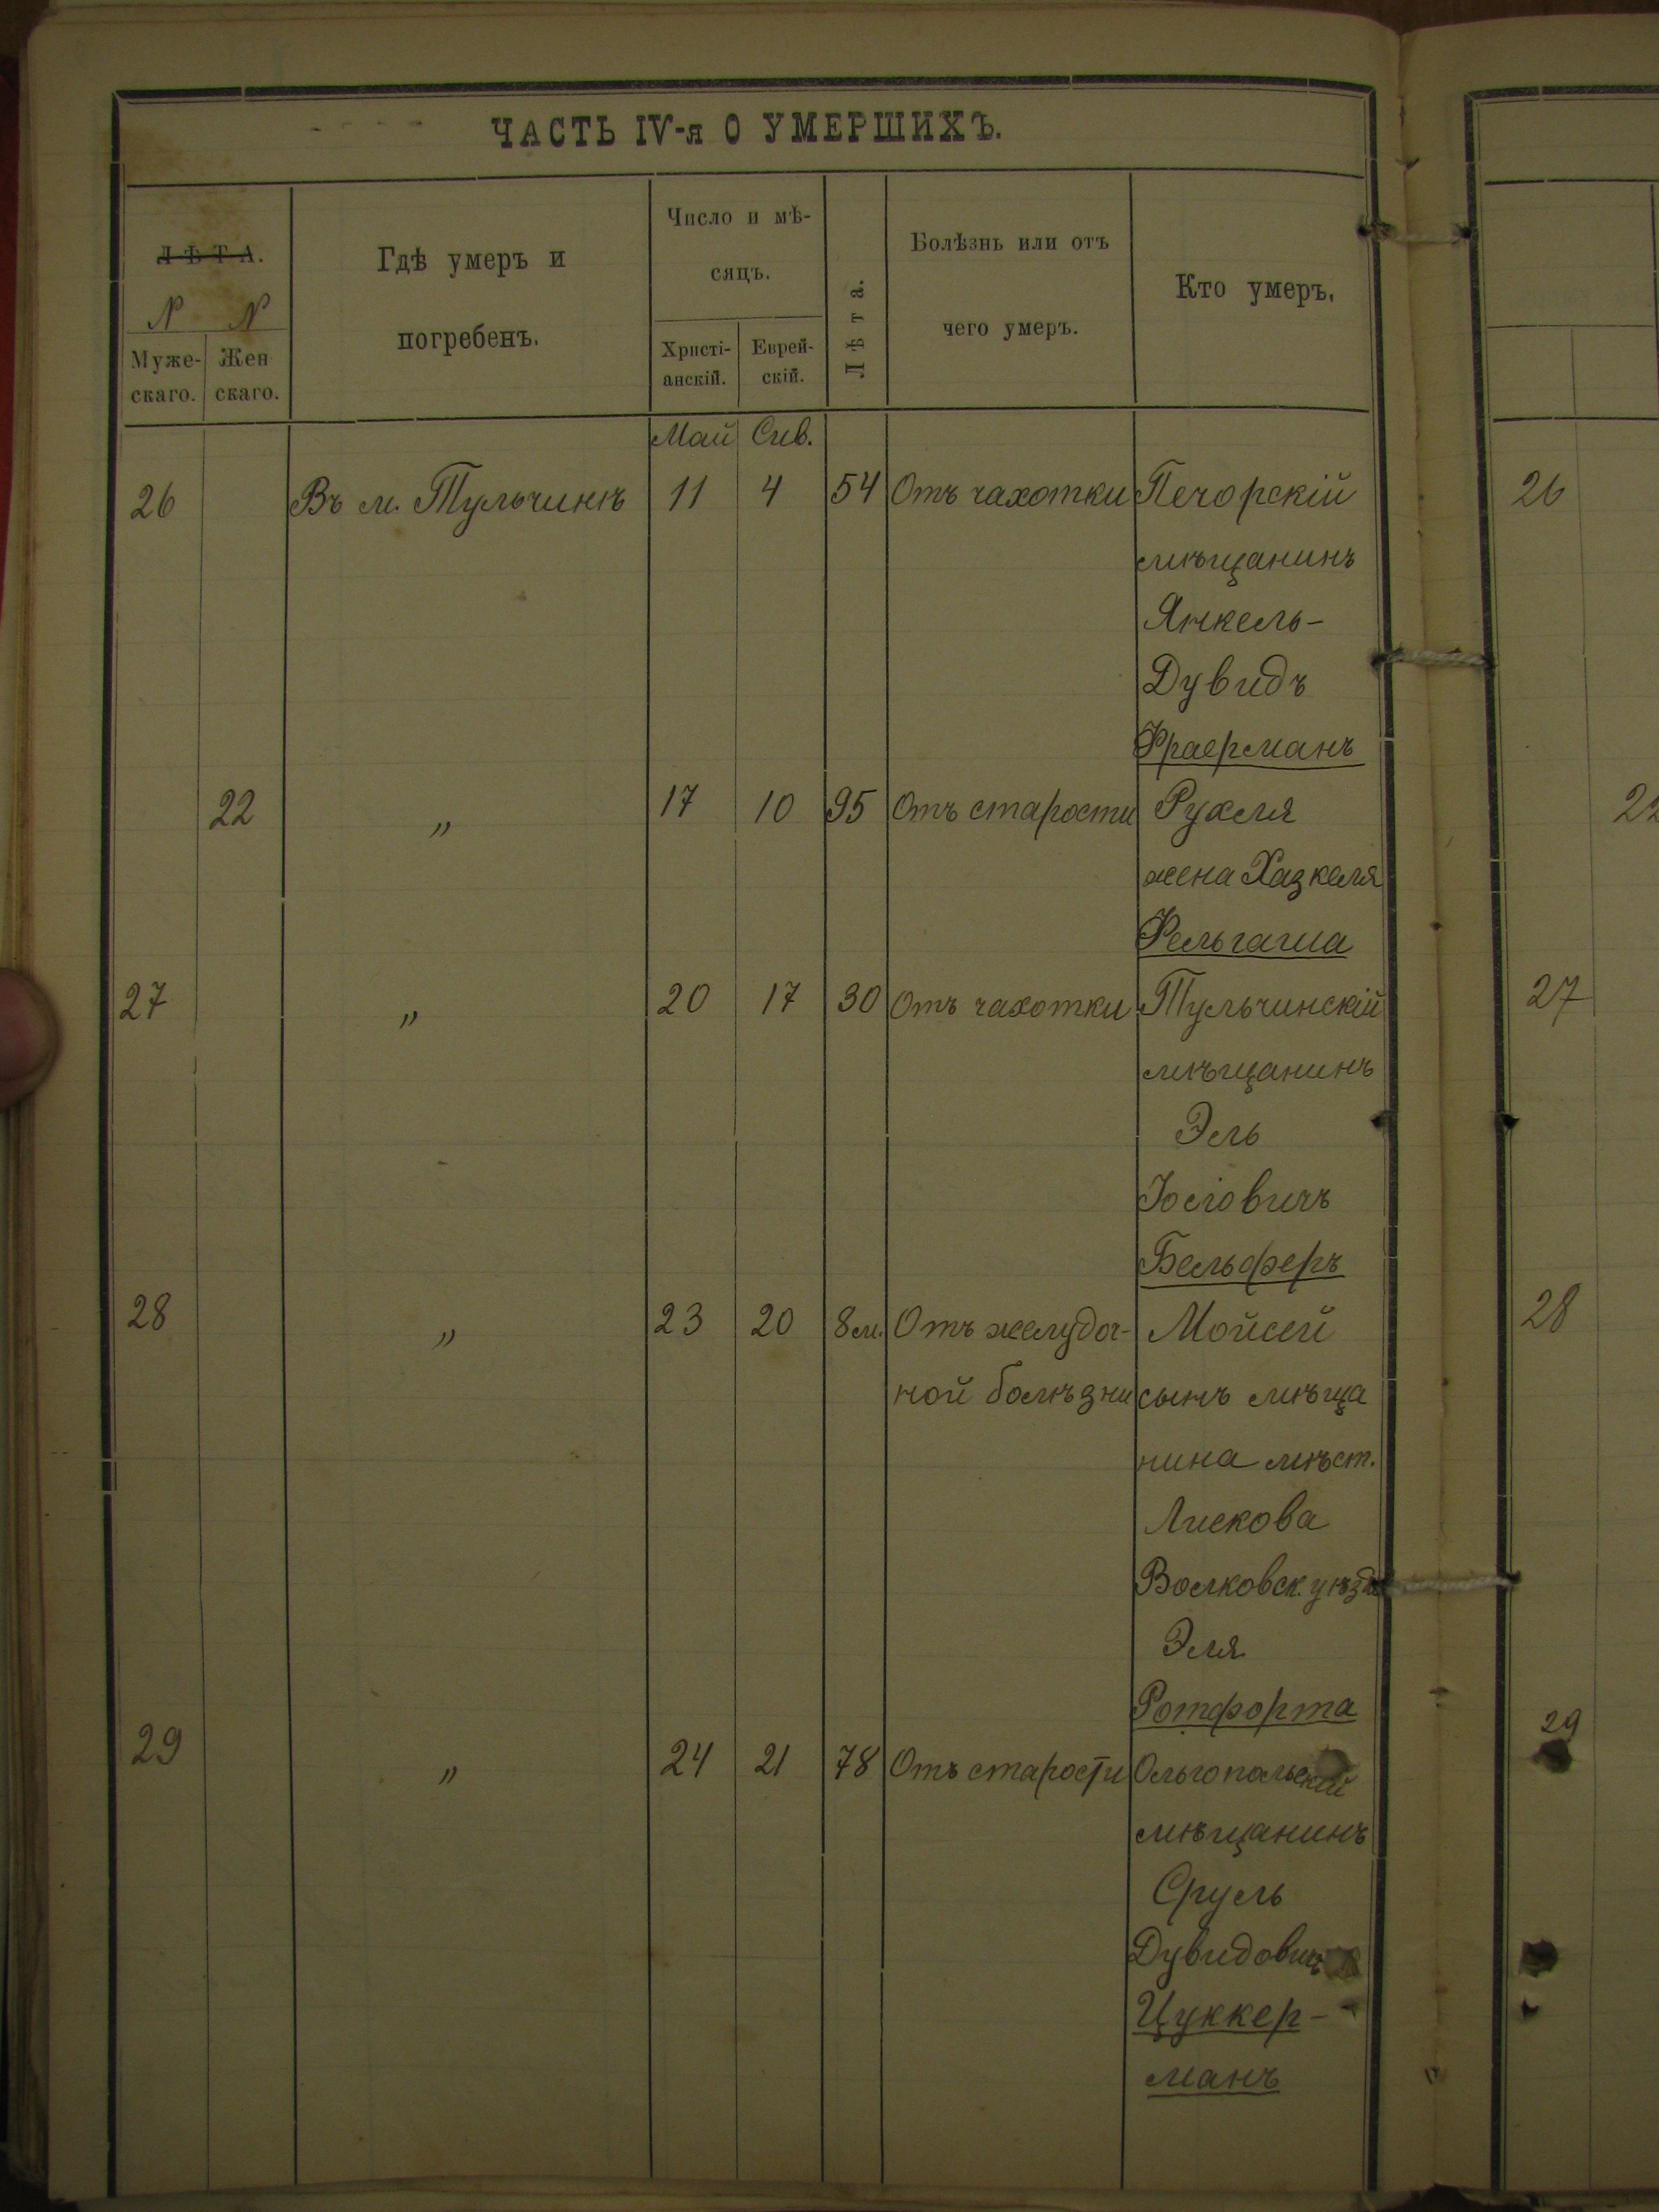 ЧАСТЬ IV-я О УМЕРШИХЪ.
ЛѢТА.
N N
Муже-
скаго.
Жен
скаго.
Гдѣ умеръ и
погребенъ.
Число и мѣ-
сяцъ.
Христі-
анскій.
Еврей-
скій.
Лѣта.
Болѣзнь или отъ
чего умеръ.
Кто умеръ.
Май Сив.
26 Въ м. Тульчинѣ 11 4 54 Отъ чахотки Печорскій 26
мѣщанинъ
Янкель-
Дувидъ
Фраерманъ
22 „ 17 10 95 Отъ старости Рухля 22
жена Хазкеля
Фельгаша
27 „ 20 17 30 Отъ чахотки Тульчинскій 27
мѣщанинъ
Эль
Іосіовичъ
Бельферъ
28 „ 23 20 8 м. Отъ желудоч- Мойсей 28
ной болѣзни сынъ мѣща
нина мѣст.
Лискова
Волковск. уѣзда
Эля
Ротфорта
29 „ 24 21 78 Отъ старости Ольгопольскій 29
мѣщанинъ
Сруль
Дувидовичъ
Цуккер-
манъ